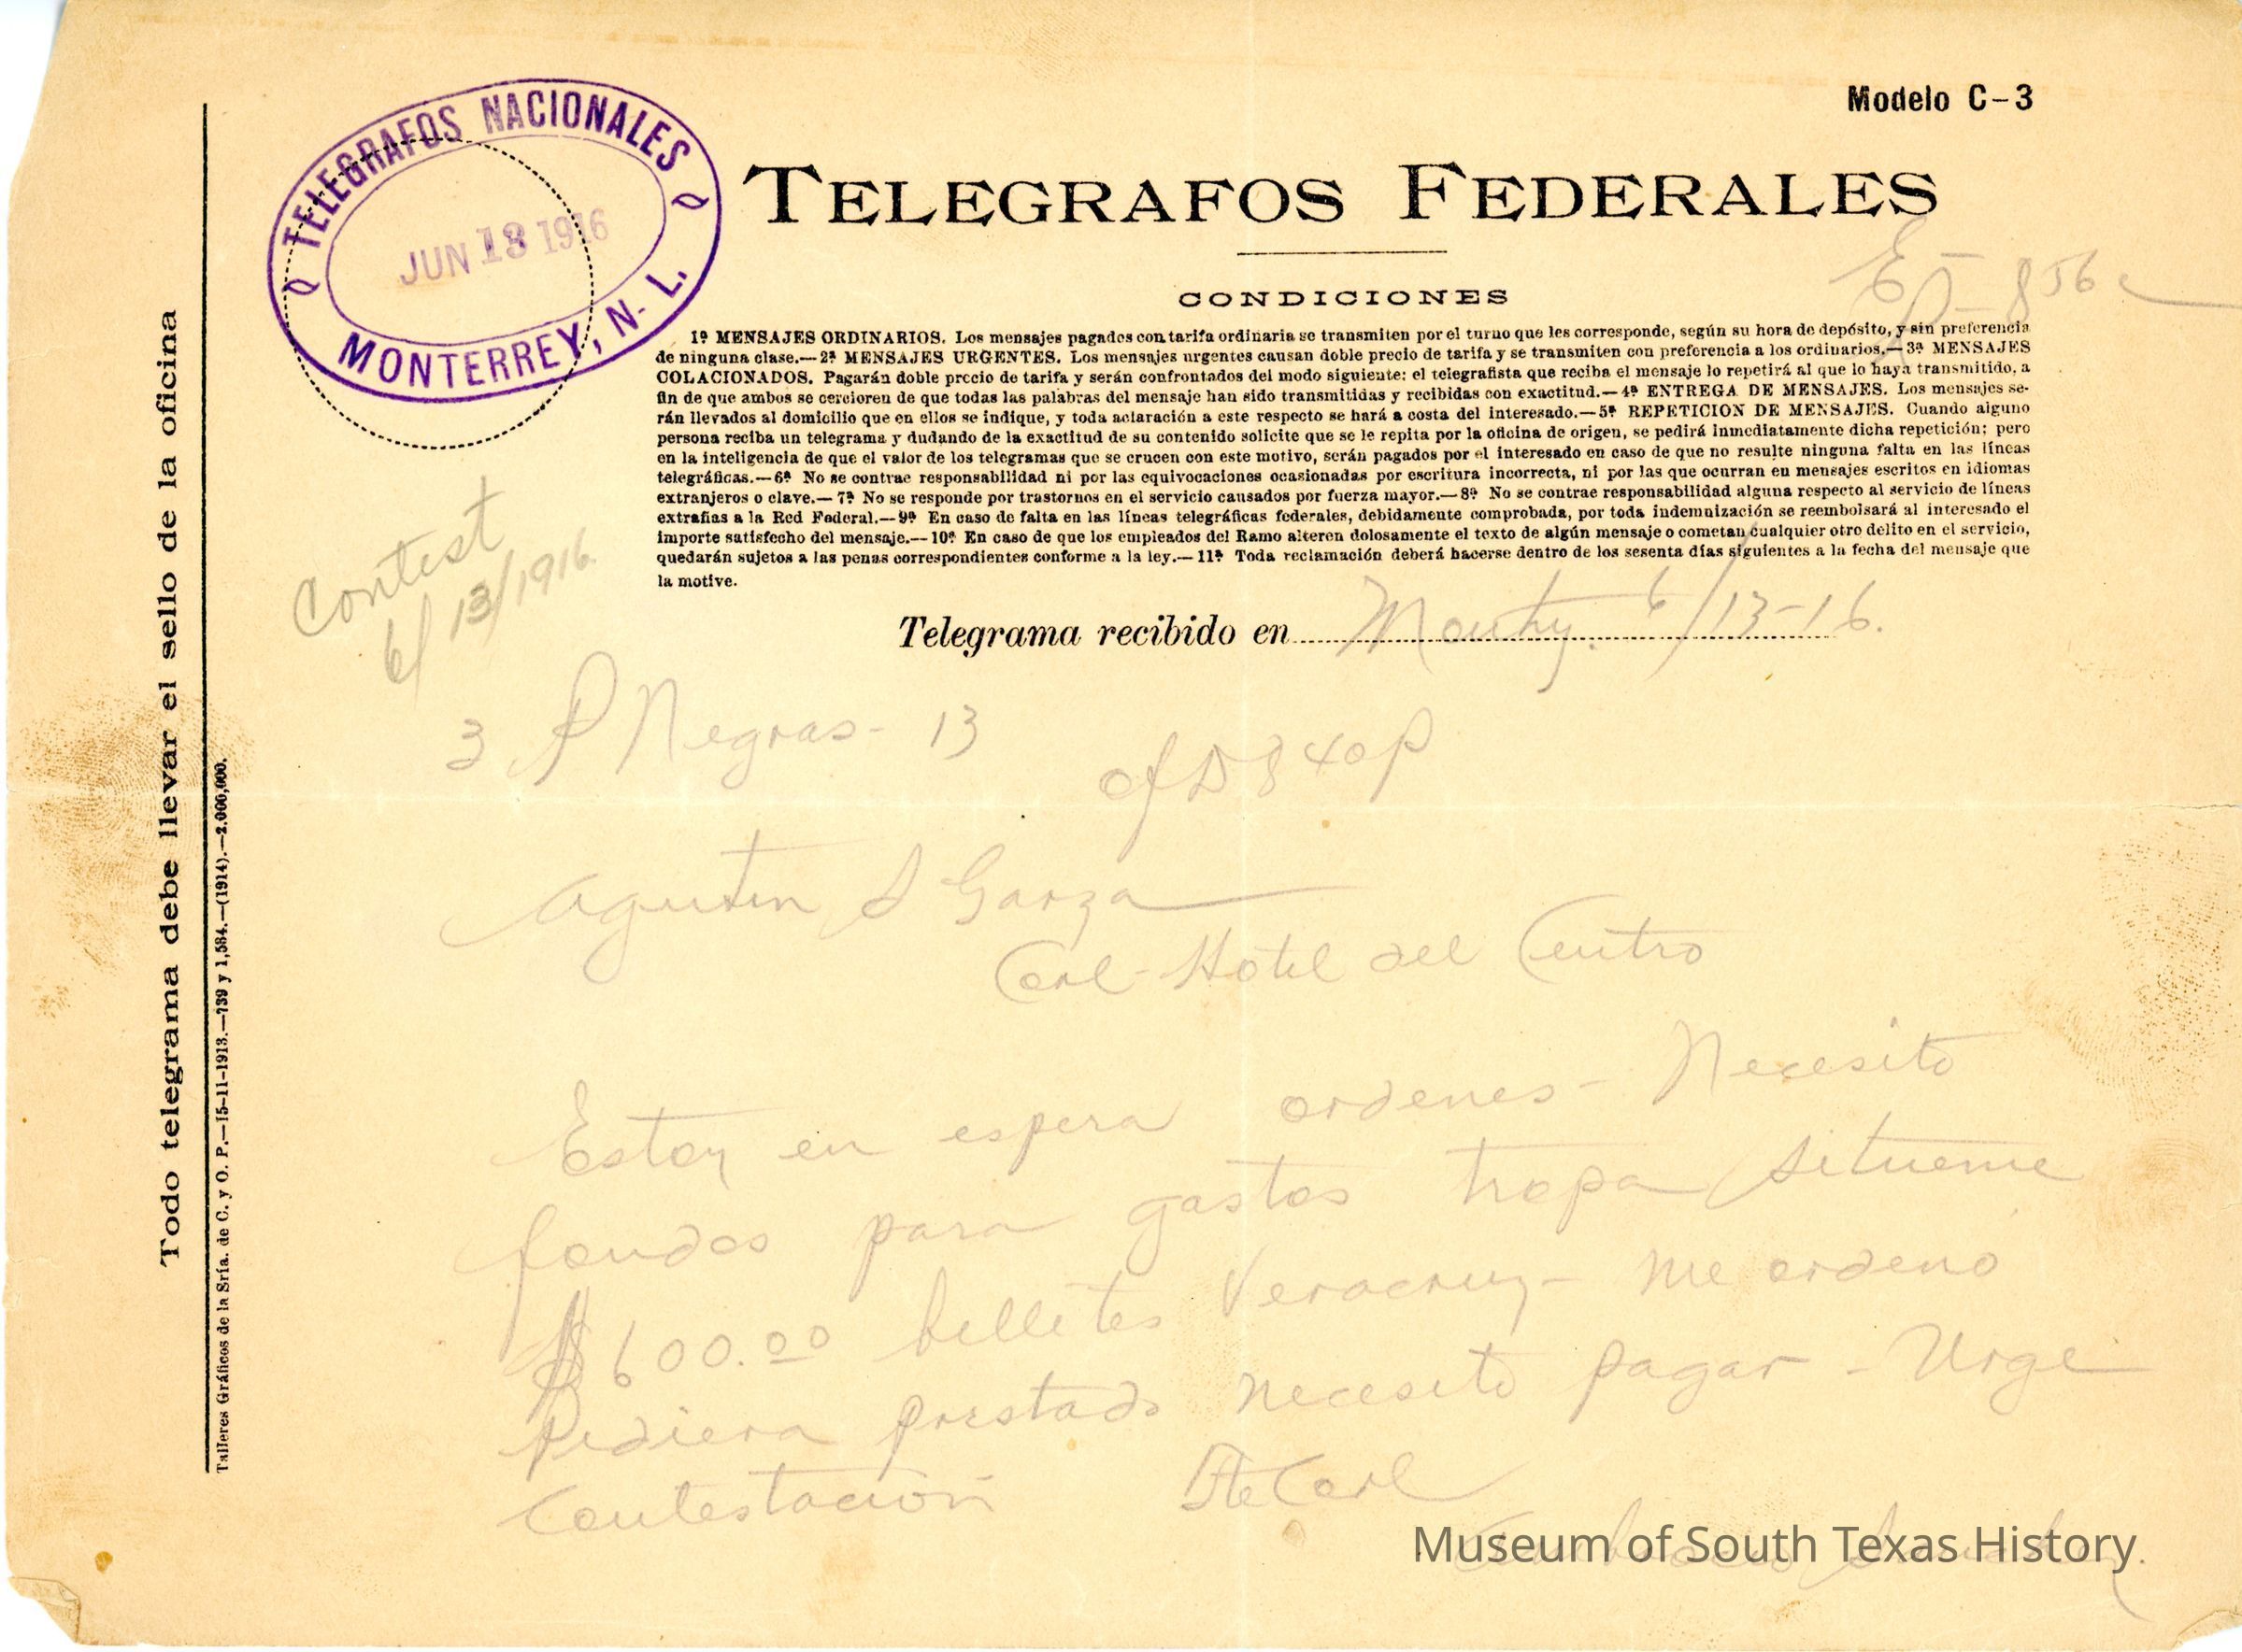 Modelo C-3
TELEGRAFOS NACIONALES
JUN 13 1916
MONTERREY, N. L.
TELEGRAFOS FEDERALES
CONDICIONES
1ª MENSAJES ORDINARIOS. Los mensajes pagados con tarifa ordinaria se transmiten por el turno que les corresponde, según su hora de depósito, y sin preferencia
de ninguna clase.—2ª MENSAJES URGENTES. Los mensajes urgentes causan doble precio de tarifa y se transmiten con preferencia a los ordinarios.—3ª MENSAJES
COLACIONADOS. Pagarán doble precio de tarifa y serán confrontados del modo siguiente: el telegrafista que reciba el mensaje lo repetirá al que lo haya transmitido, a
fin de que ambos se cercioren de que todas las palabras del mensaje han sido transmitidas y recibidas con exactitud.—4ª ENTREGA DE MENSAJES. Los mensajes se-
rán llevados al domicilio que en ellos se indique, y toda aclaración a este respecto se hará a costa del interesado.—5ª REPETICION DE MENSAJES. Cuando alguno
persona reciba un telegrama y dudando de la exactitud de su contenido solicite que se le repita por la oficina de origen, se pedirá inmediatamente dicha repetición; pero
en la inteligencia de que el valor de los telegramas que se crucen con este motivo, serán pagados por el interesado en caso de que no resulte ninguna falta en las líneas
telegráficas.—6ª No se contrae responsabilidad ni por las equivocaciones ocasionadas por escritura incorrecta, ni por las que ocurran en mensajes escritos en idiomas
extranjeros o clave.—7ª No se responde por trastornos en el servicio causados por fuerza mayor.—8ª No se contrae responsabilidad alguna respecto al servicio de líneas
extrañas a la Red Federal.—9ª En caso de falta en las líneas telegráficas federales, debidamente comprobada, por toda indemnización se reembolsará al interesado el
importe satisfecho del mensaje.—10ª En caso de que los empleados del Ramo alteren dolosamente el texto de algún mensaje o cometan cualquier otro delito en el servicio,
quedarán sujetos a las penas correspondientes conforme a la ley.—11ª Toda reclamación deberá hacerse dentro de los sesenta días siguientes a la fecha del mensaje que
la motive.
Contest
6/13/1916.
Telegrama recibido en Monthy. 6/13-16.
3 P Negras- 13
of D 8 40 P
Agustin S Garza
Corl- Hotel del Centro
Estoy en espera ordenes- Necesito
fondos para gastos tropa situeme
$600.00 billetes Veracruz- me ordeno
pidiera prestado necesito pagar - Urge
Contestación Tte Corl
Todo telegrama debe llevar el sello de la oficina
Talleres Gráficos de la Sría. de C. y O. P.—15-11-1913.—739 y 1,584.—(1914).—2.000,000.
Museum of South Texas History